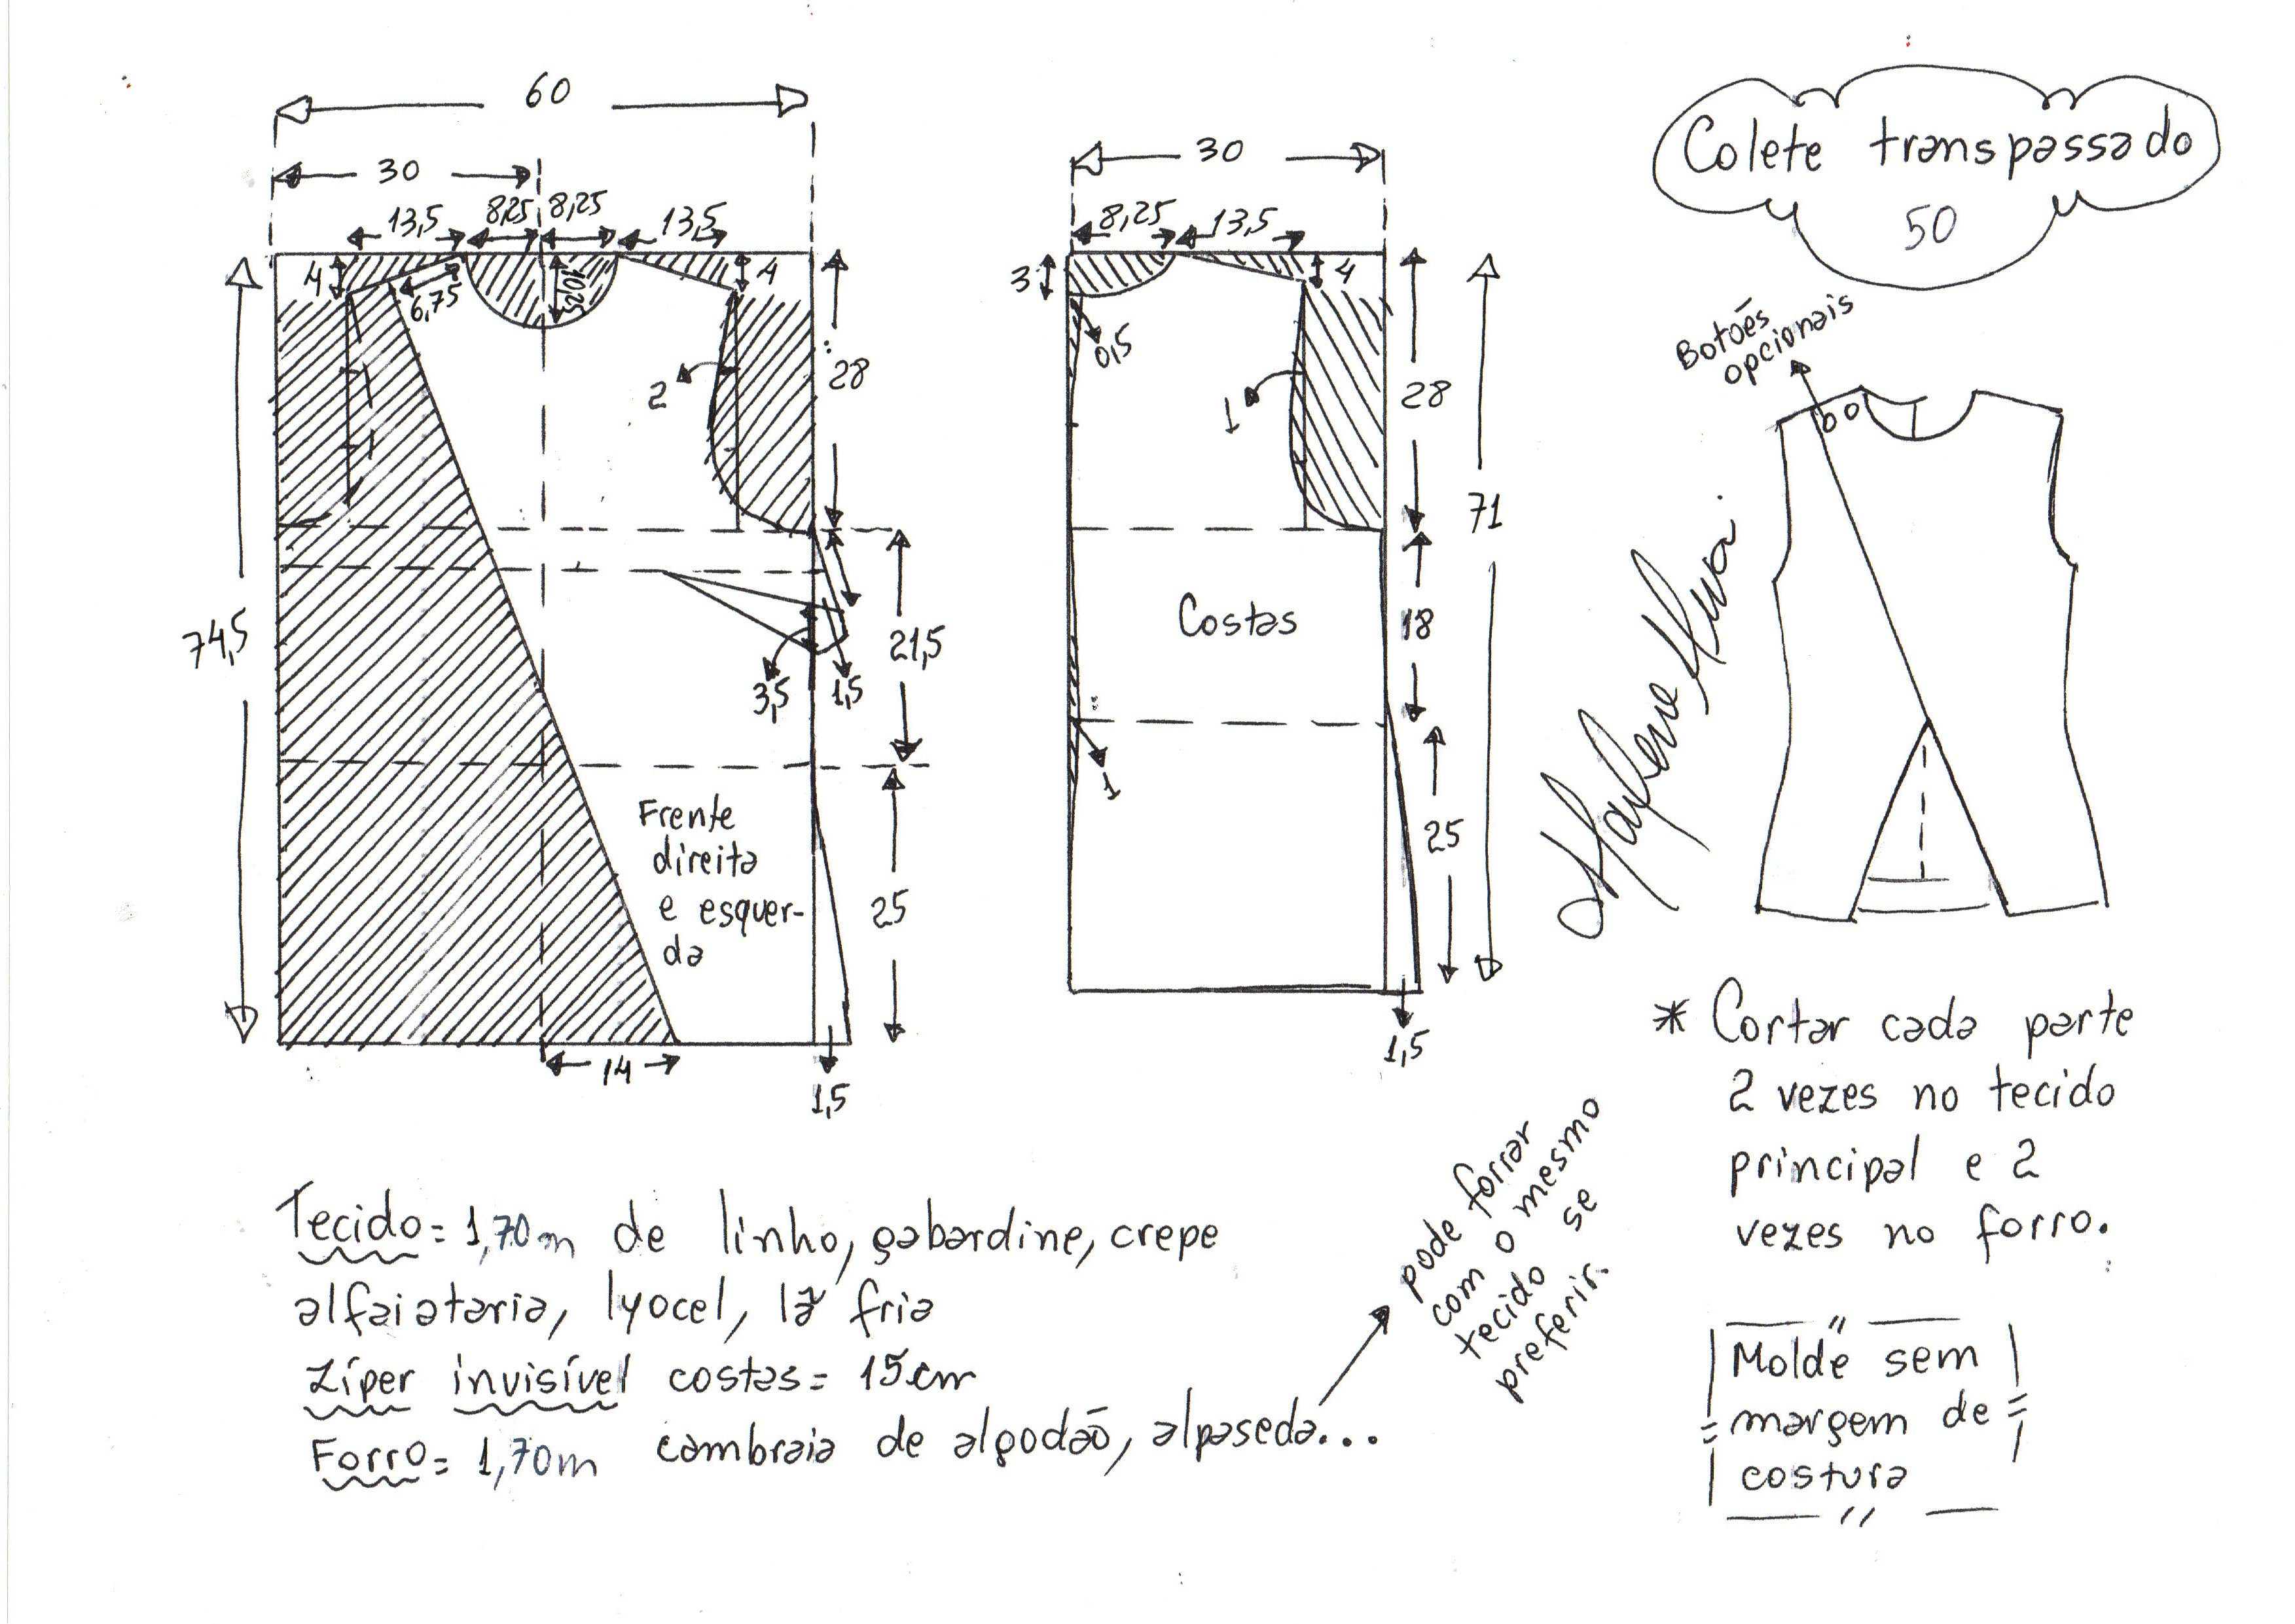 Colete transpassado
50
60
30
13,5
8,25
8,25
13,5
4
6,75
10,25
4
2
28
74,5
21,5
3,5
1,5
Frente
direita
e esquer-
da
25
14
1,5
30
8,25
13,5
3
4
0,5
1
28
71
Costas
18
1
25
1,5
Botões
opcionais
* Cortar cada parte
2 vezes no tecido
principal e 2
vezes no forro.
Molde sem
margem de
costura
Tecido = 1,70m de linho, gabardine, crepe
alfaiataria, lyocel, lã fria
Zíper invisível costas = 15cm
Forro = 1,70m cambraia de algodão, alpaseda...
pode forrar
com o mesmo
tecido se
preferir.